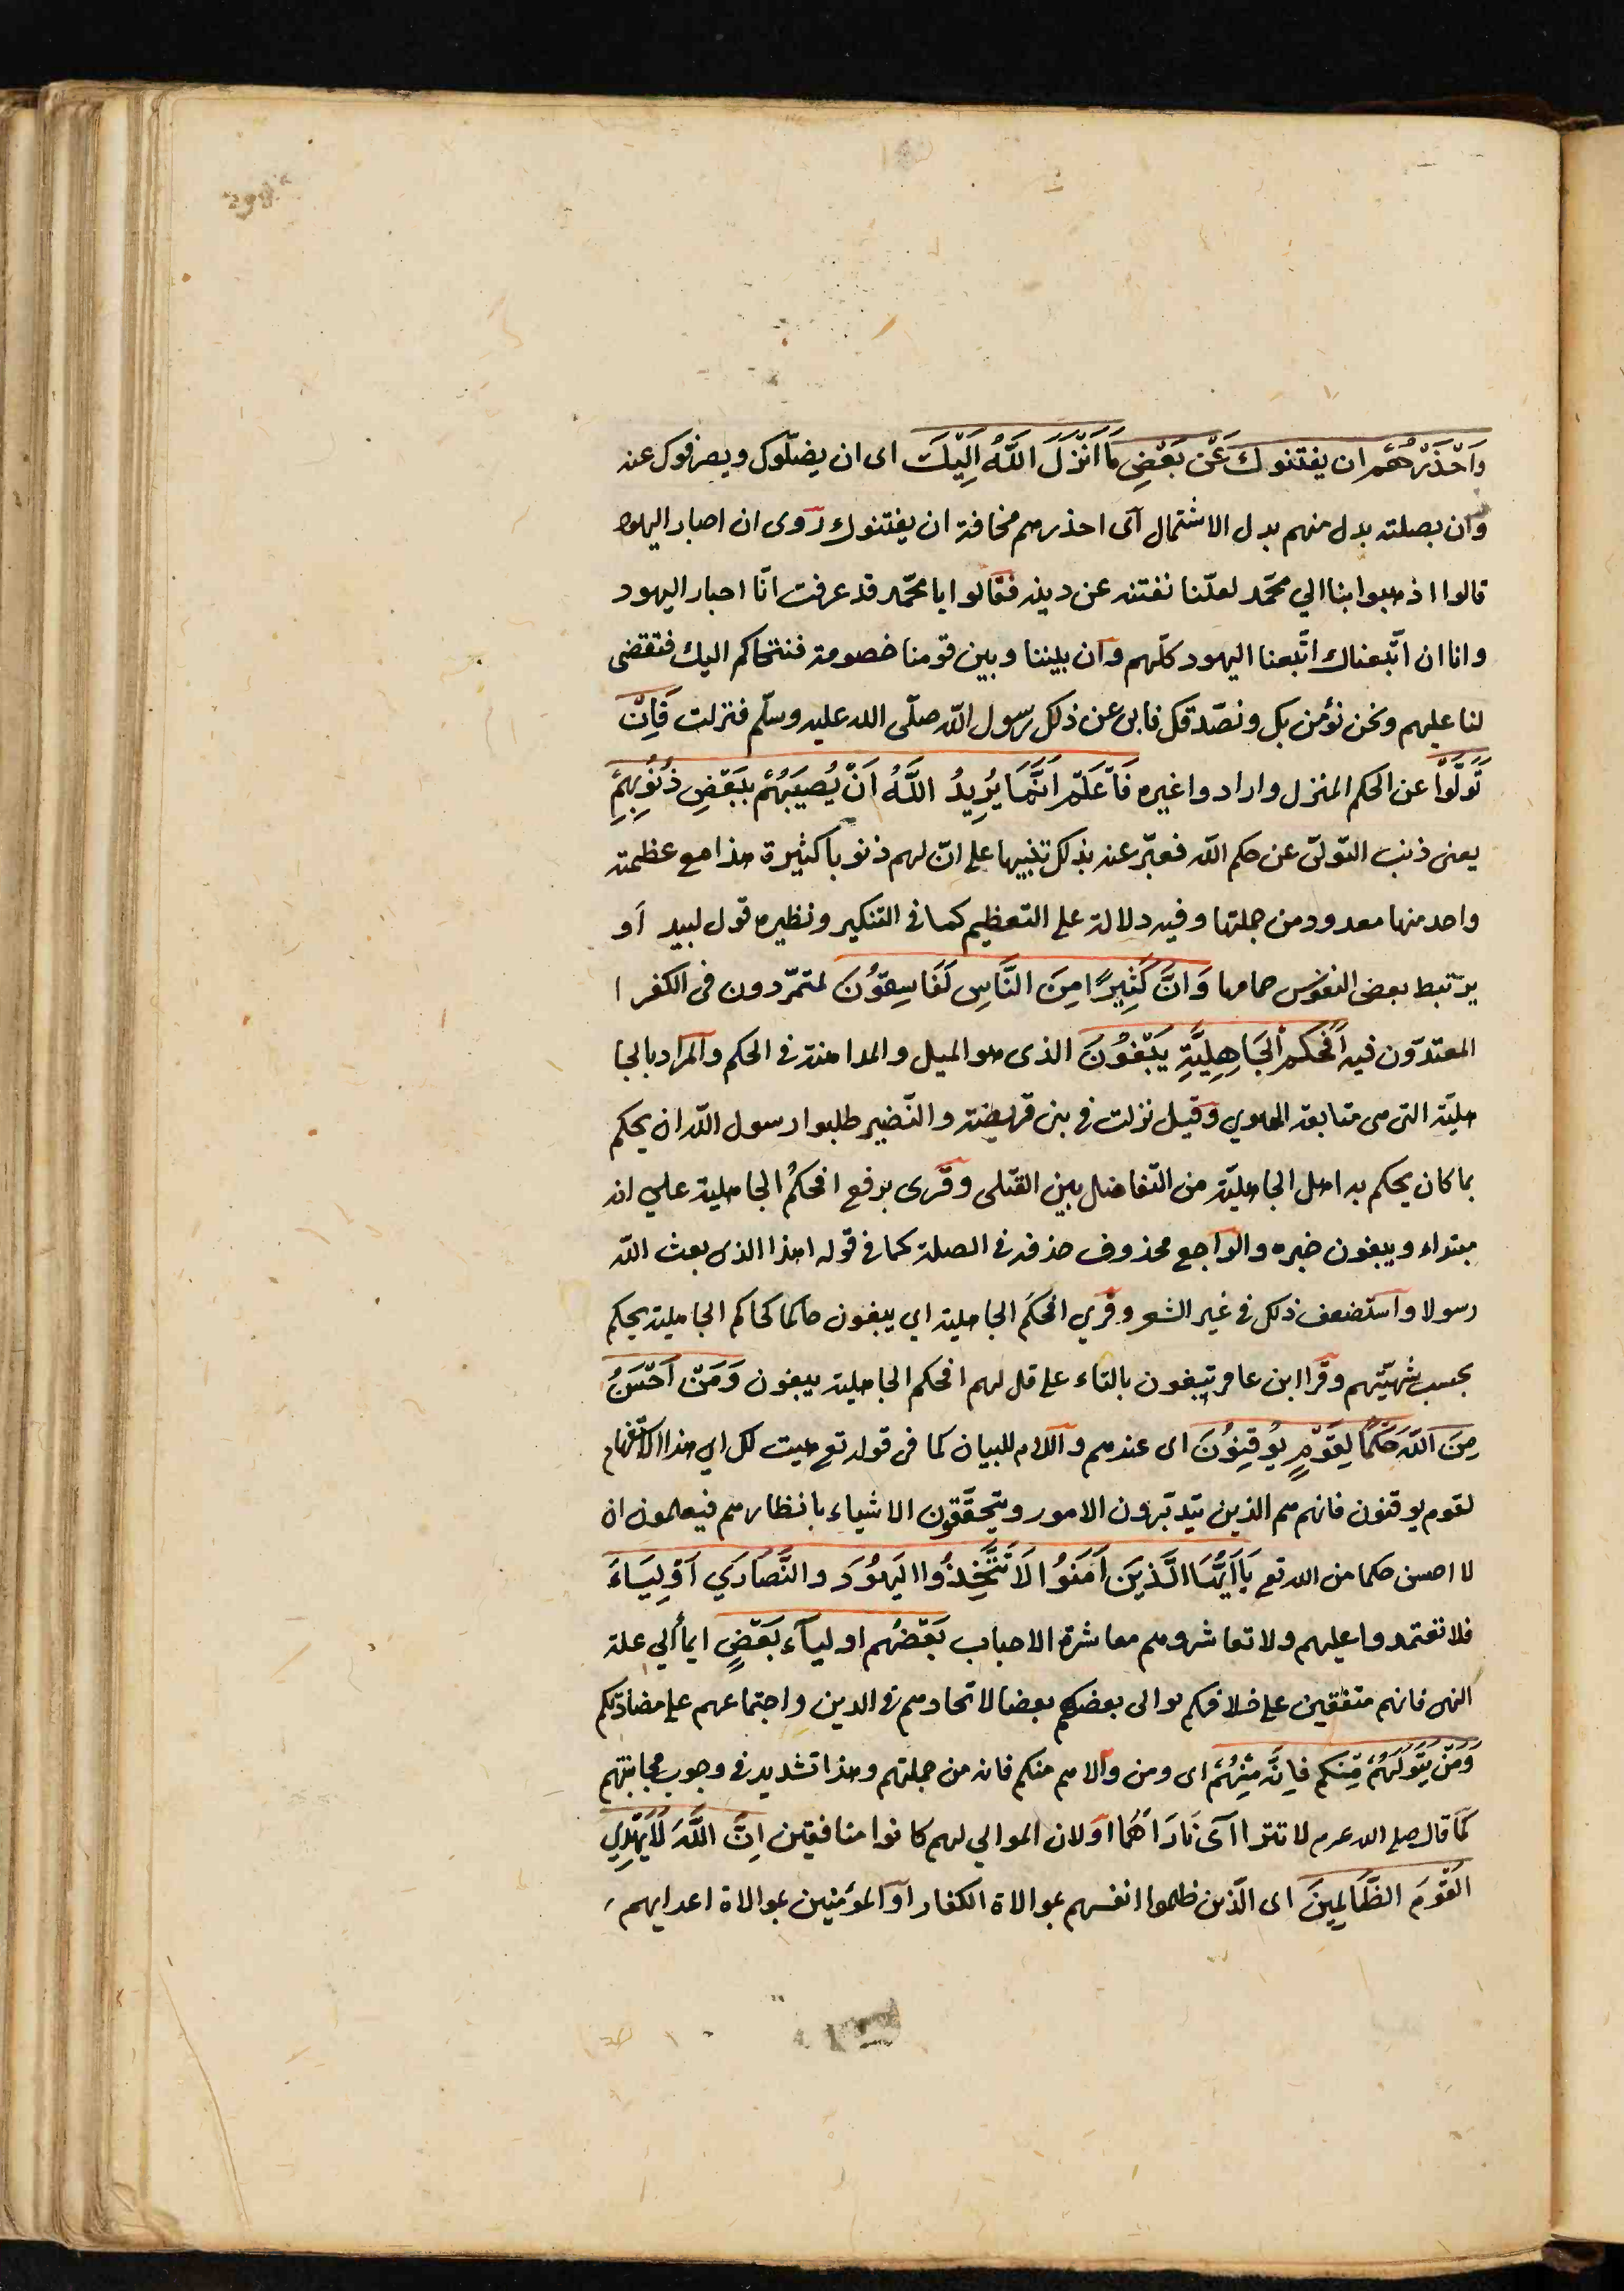 وَاحْذَرْهُمْ ان يفتنوك عَنْ بَعْضِ مَا اَنْزَلَ اللَّهُ اِلَيْكَ اى ان يضلّوك ويصرفوك عنه
وان بصلته بدل منهم بدل الاشتمال اى احذرهم مخافة ان يفتنوك روى ان احبار اليهود
قالوا اذهبوا بنا الي محمّد لعلّنا نفتنه عن دينه فقالوا يا محمّد قد عرفت انّا احبار اليهود
وانا ان اتّبعناك اتّبعنا اليهود كلّهم وان بيننا وبين قومنا خصومة فنتحاكم اليك فتقضى
لنا عليهم ونحن نؤمن بك ونصّدقك فابى عن ذلك رسول اللّه صلّى الله عليه وسلّم فنزلت فَاِنْ
تَوَلَّوْا عن الحكم المنزل وارادوا غيره فَاعْلَمْ اَنَّمَا يُرِيدُ اللَّهُ اَنْ يُصِيبَهُمْ بِبَعْضِ ذُنُوبِهِمْ
يعنى ذنب التّولىّ عن حكم اللّه فعبّر عنه بذلك تنبيها على انّ لهم ذنوباً كثيرة هذا مع عظمته
واحد منها معدود من جملتها وفيه دلالة على التعظيم كما فى التنكير ونظيره قول لبيد اَو
يرتبط بعض النفوس حمامها وَاِنَّ كَثِيرًا مِنَ النَّاسِ لَفَاسِقُونَ لمتمرّدون فى الكفر ا
المعتدّون فيه اَفَحُكْمَ الْجَاهِلِيَّةِ يَبْغُونَ الذى هو الميل والمداهنة فى الحكم والمراد بالجا
هليّة التى هى متابعة الهوي وقيل نزلت فى بنى قريضة والنّضير طلبوا رسول اللّه ان يحكم
بما كان يحكم به اهل الجاهليّة من التّفاضل بين القتلى وقرى برفع افحكمُ الجاهلية علي انه
مبتداء ويبغون خبره والراجع محذوف حذفه فى الصلة كما فى قوله اهذا الذى بعث اللّه
رسولا واستضعف ذلك فى غير الشعر وقري افحكَم الجاهلية اي يبغون حاكما كحاكم الجاهلية يحكم
بحسب شهيّتهم وقرا ابن عامر تبغون بالتاء على قل لهم افحكم الجاهلية يبغون وَمَنْ اَحْسَنُ
مِنَ اللَّهِ حُكْمًا لِقَوْمٍ يُوقِنُونَ اى عندهم واللام للبيان كما فى قوله تع هيت لك اي هذا الاستفهام
لقوم يوقنون فانهم هم الذين يتدبّرون الامور ويتحقّقون الاشياء بانظارهم فيعلمون ان
لا احسن حكما من الله تع يَا اَيُّهَا الَّذِينَ اَمَنُوا لَا تَتَّخِذُوا الْيَهُودَ والنَّصَارَي اَوْلِيَاءَ
فلا تعتمدوا عليهم ولا تعاشروهم معاشرة الاحباب بَعْضُهُم اوليآء بَعْضٍ ايمأ الي علة
النهى فانهم متفقين على خلافكم يوالى بعضهم بعضا لاتحادهم فى الدين واجتماعهم على مضادّتكم
وَمَنْ يَتَوَلَّهُمْ مِنْكم فاِنَّه مِنْهُمْ اى ومن والاهم منكم فانه من جملتهم وهذا تشديد فى وجوب مجانبتهم
كما قال صلى الله عرم لا تترااى نَارَاهُمَا اَو لان الموالي لهم كانوا منافقين اِنَّ اللَّهَ لَا يَهْدِي
الْقَوْمَ الظَّالِمِينَ اى الّذين ظلموا انفسهم بموالاة الكفار او المؤمنين بموالاة اعدايهم